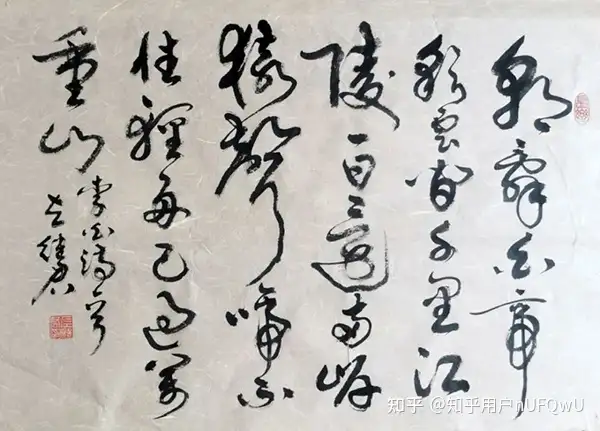 朝辭白帝
彩云間千里江
陵一日還两岸
猿聲啼不
住輕舟已過萬
重山
李白詩一首
知乎 @知乎用户nUFQwU